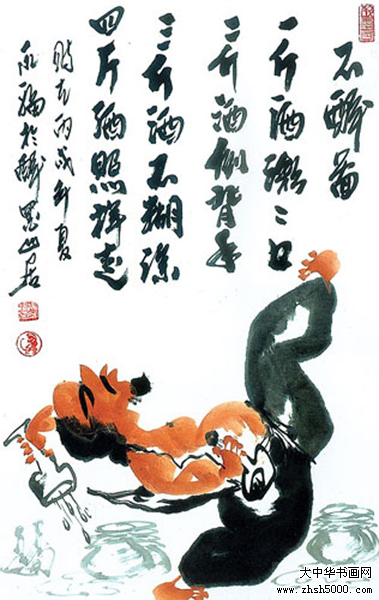 不醉图
一斤酒漱々口
二斤酒倒背手
三斤酒不糊涂
四斤酒照样走
时在丙戌年夏
於醉墨山居
大中华书画网
www.zhsh5000.com